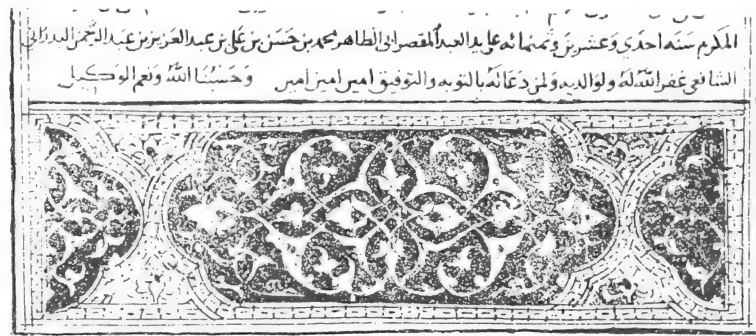 المكرم سنه احدي وعشرين وثمنمائه على يد العبد المقصر ابى الطاهر محمد بن حسن بن على بن عبد العزيز بن عبد الرحمن
الشافعى غفر الله له ولوالديه ولمن دعا له بالتوبه والتوفيق امين امين امين وحسبنا الله ونعم الوكيل